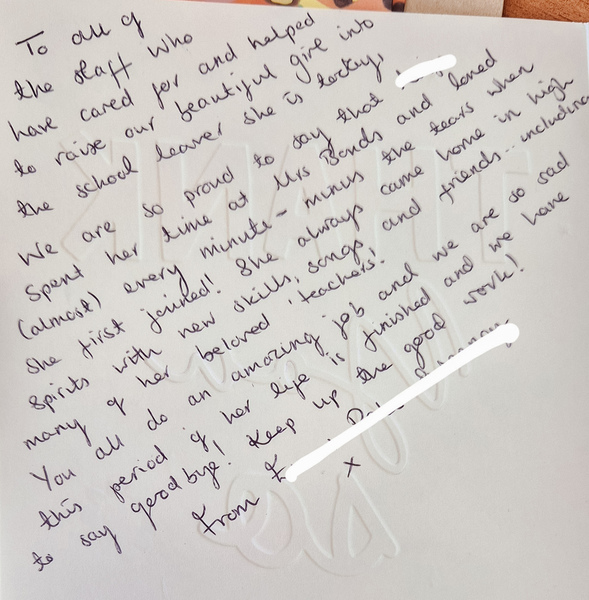 To all of
the staff who
have cared for and helped
to raise our beautiful girl into
the school leaver she is today.
We are so proud to say that
spent her time at Mrs Bonds and loved
(almost) every minute - minus the tears when
she first joined! She always came home in high
spirits with new skills, songs and friends... including
many of her beloved 'teachers!'
You all do an amazing job and we are so sad
this period of her life is finished and we have
to say goodbye! Keep up the good work!
From
x